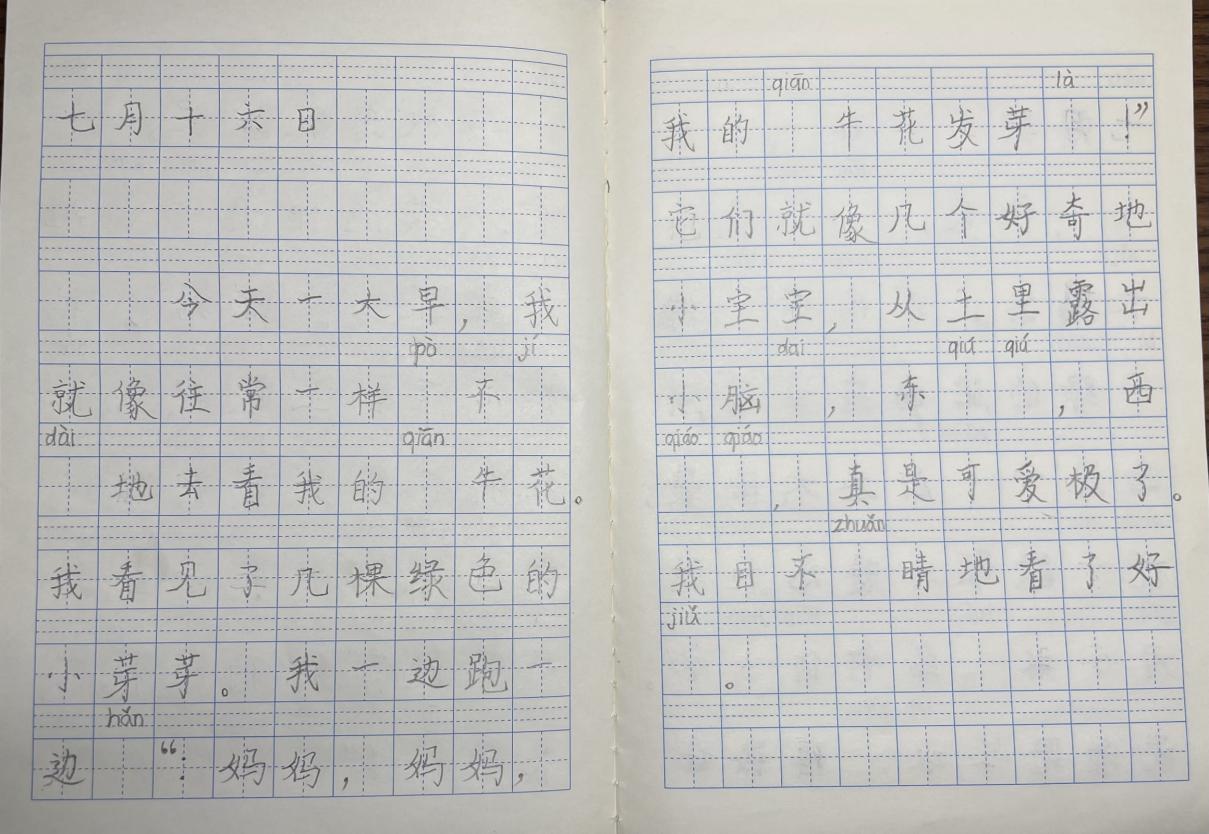 七月十六日
今天一大早，我
就像往常一样pò不jí
dài地去看我的qiān牛花。
我看见了几棵绿色的
小芽芽。我一边跑一
边hǎn“：妈妈，妈妈，
我的qiān牛花发芽là！”
它们就像几个好奇地
小宝宝，从土里露出
小脑dai，东qiú qiú，西
qiáo qiáo，真是可爱极了。
我目不zhuǎn睛地看了好
jiǔ。